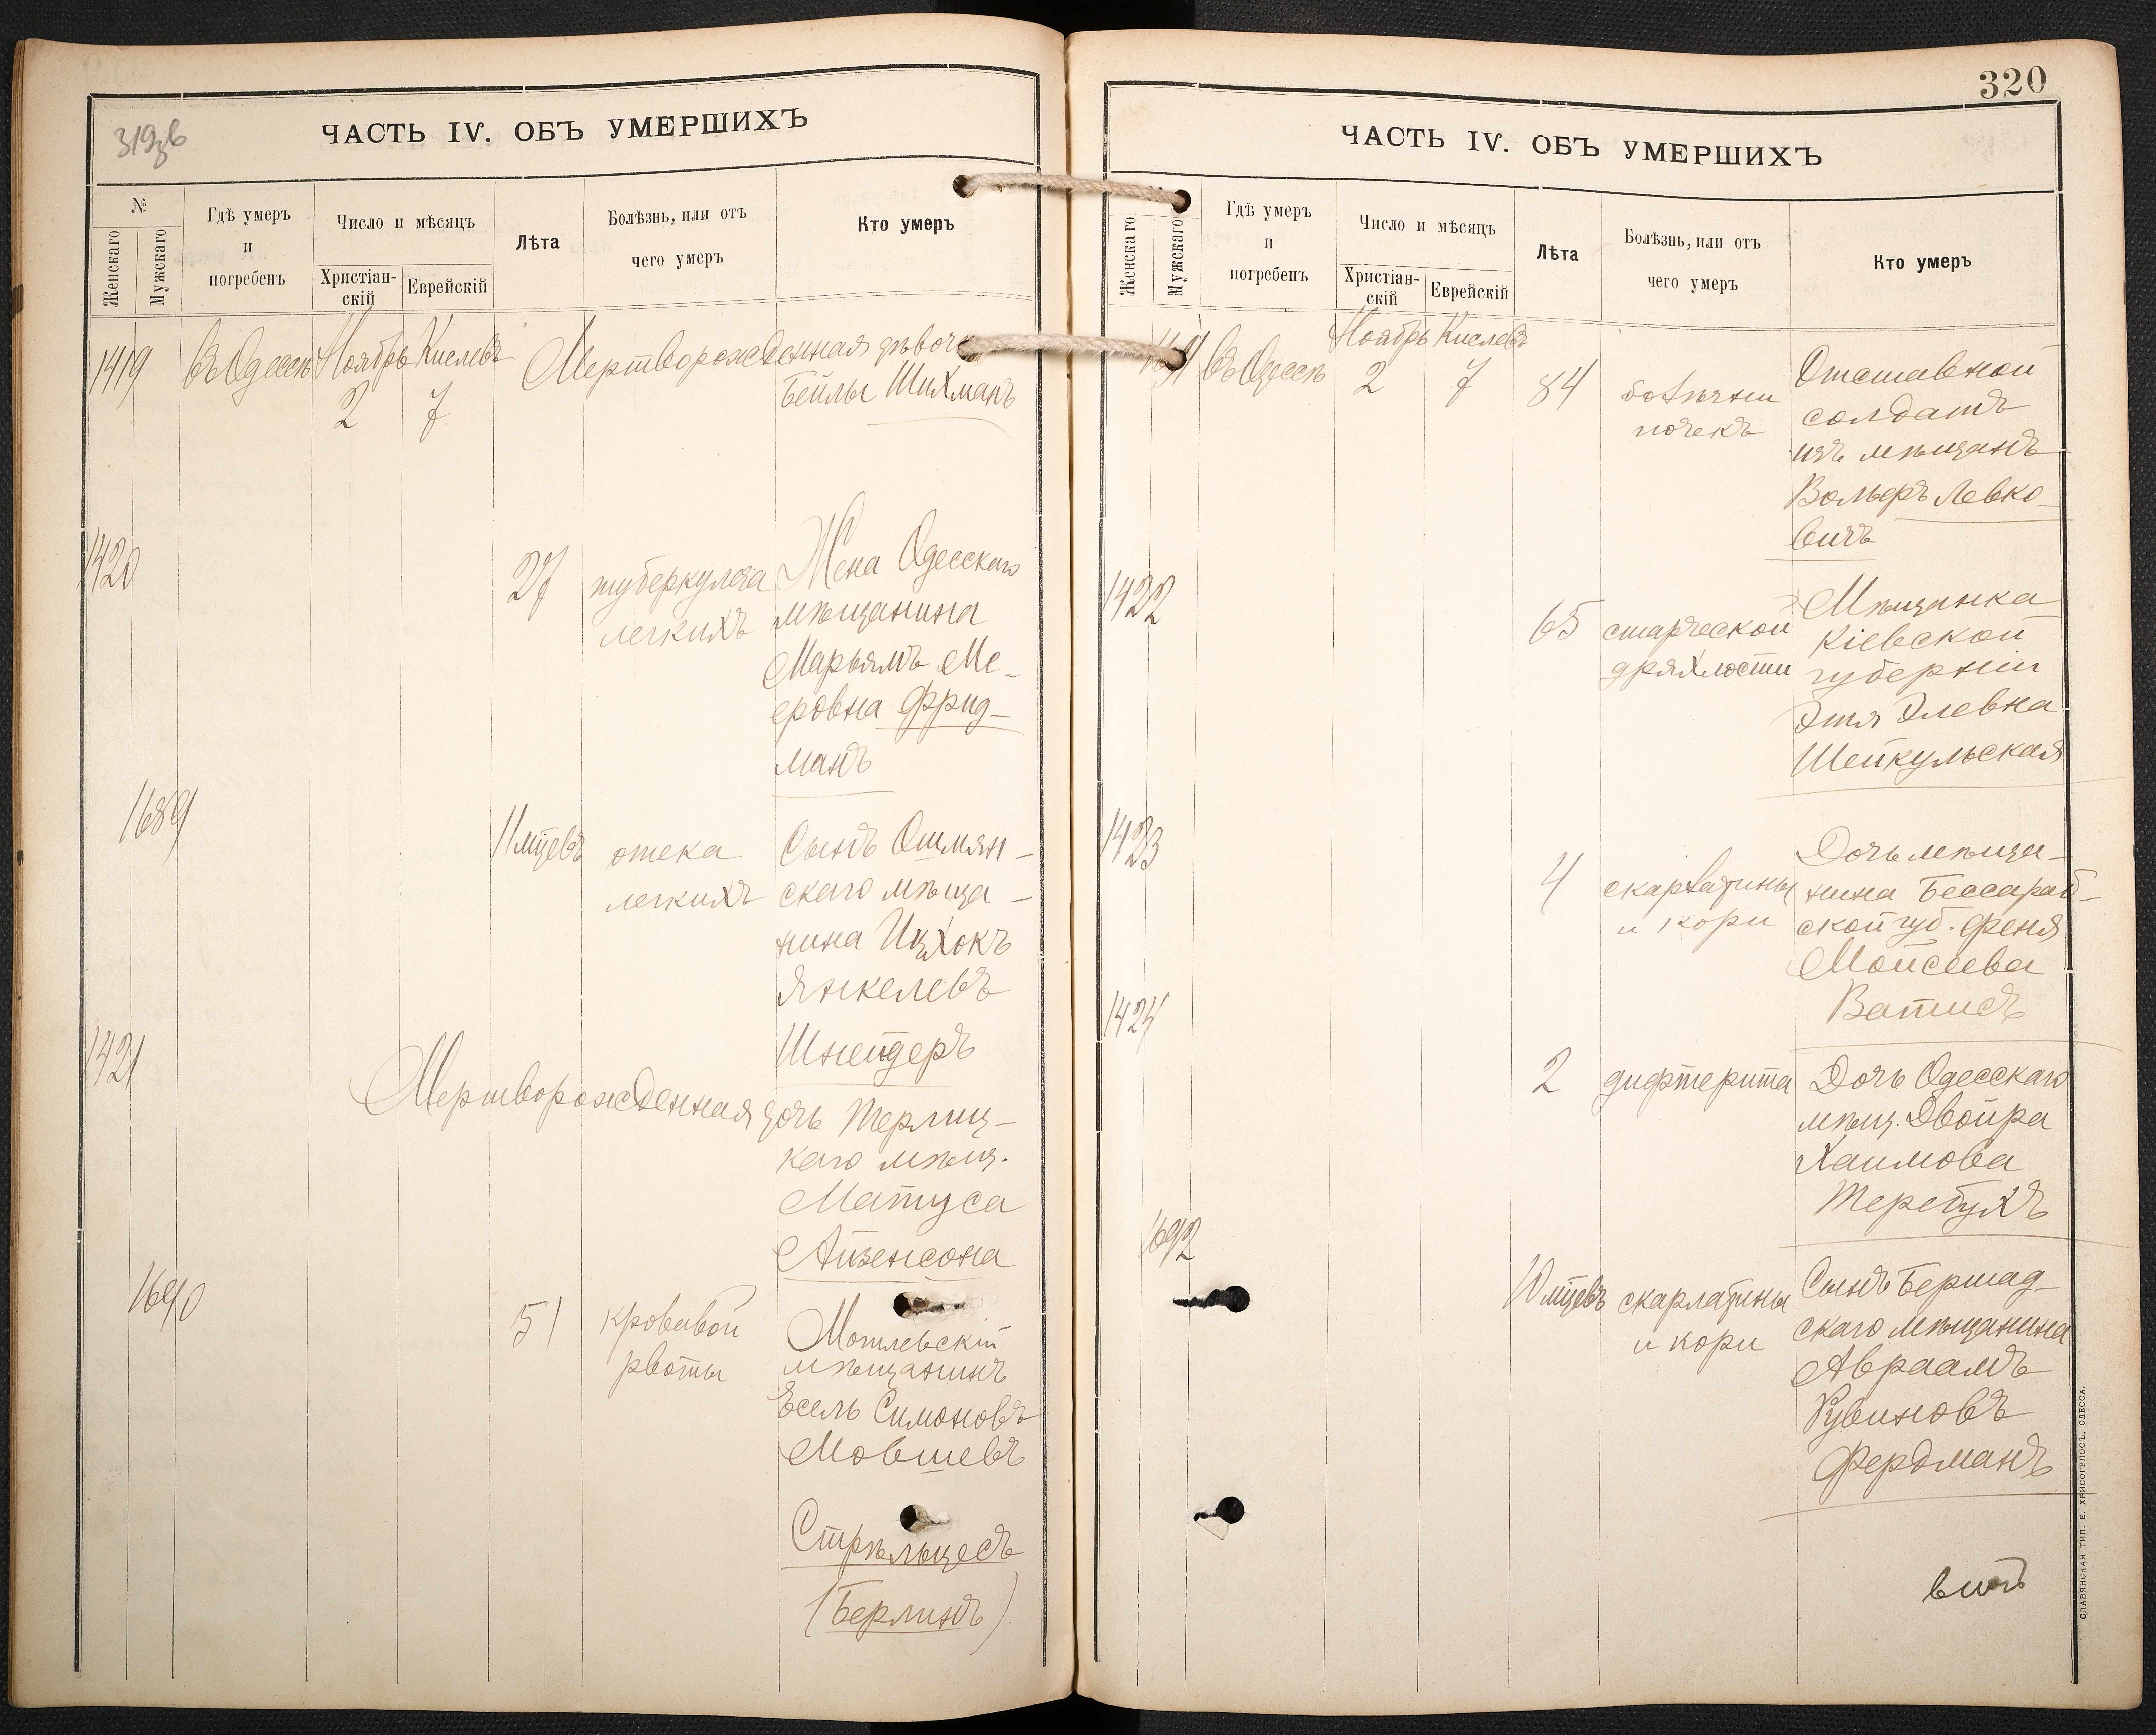 319об
ЧАСТЬ IV. ОБЪ УМЕРШИХЪ
№
Женскаго
Мужскаго
Гдѣ умеръ
и
погребенъ
Число и мѣсяцъ
Христіан-
скій
Еврейскій
Лѣта
Болѣзнь, или отъ
чего умеръ
Кто умеръ
1419 Въ Одессѣ Ноябрь Кислевъ Мертворожденная дѣвочка
2 7 Бейлы Шихманъ
1420
27 туберкулеза Жена Одесскаго
легкихъ мѣщанина
Марьямъ Ме-
еровна Фрид-
манъ
1689
11 мцевъ отека Сынъ Ошмян-
легкихъ скаго мѣща-
нина Ицхокъ
Янкелевъ
Шнейдеръ
1421
Мертворожденная дочь Терлиц-
каго мѣщ.
Матуса
Айзенсона
1690
51 кровавой Могилевскій
рвоты мѣщанинъ
Есель Симоновъ
Мовшевъ
Стрѣльцесъ
(Берлинъ)
320
ЧАСТЬ IV. ОБЪ УМЕРШИХЪ
Женскаго
Мужскаго
Гдѣ умеръ
и
погребенъ
Число и мѣсяцъ
Христіан-
скій
Еврейскій
Лѣта
Болѣзнь, или отъ
чего умеръ
Кто умеръ
1691 Въ Одессѣ Ноябрь Кислевъ
2 7 84 болѣзни Отставной
почекъ солдатъ
изъ мѣщанъ
Вольфъ Левко-
вичъ
1422
65 старческой Мѣщанка
дряхлости Кіевской
губерніи
Этя Элевна
Шейкульская
1423
4 скарлатины Дочь мѣща-
и кори нина Бессараб-
ской губ. Феня
Мойсеева
Ватисъ
1424
2 дифтерита Дочь Одесскаго
мѣщ. Двойра
Хаимова
Теребухъ
1692
10 мцевъ скарлатины Сынъ Бершад-
и кори скаго мѣщанина
Авраамъ
Рувиновъ
Фердманъ
СЛАВЯНСКАЯ ТИП. Е. ХРИСОГЕЛОСЪ, ОДЕССА.